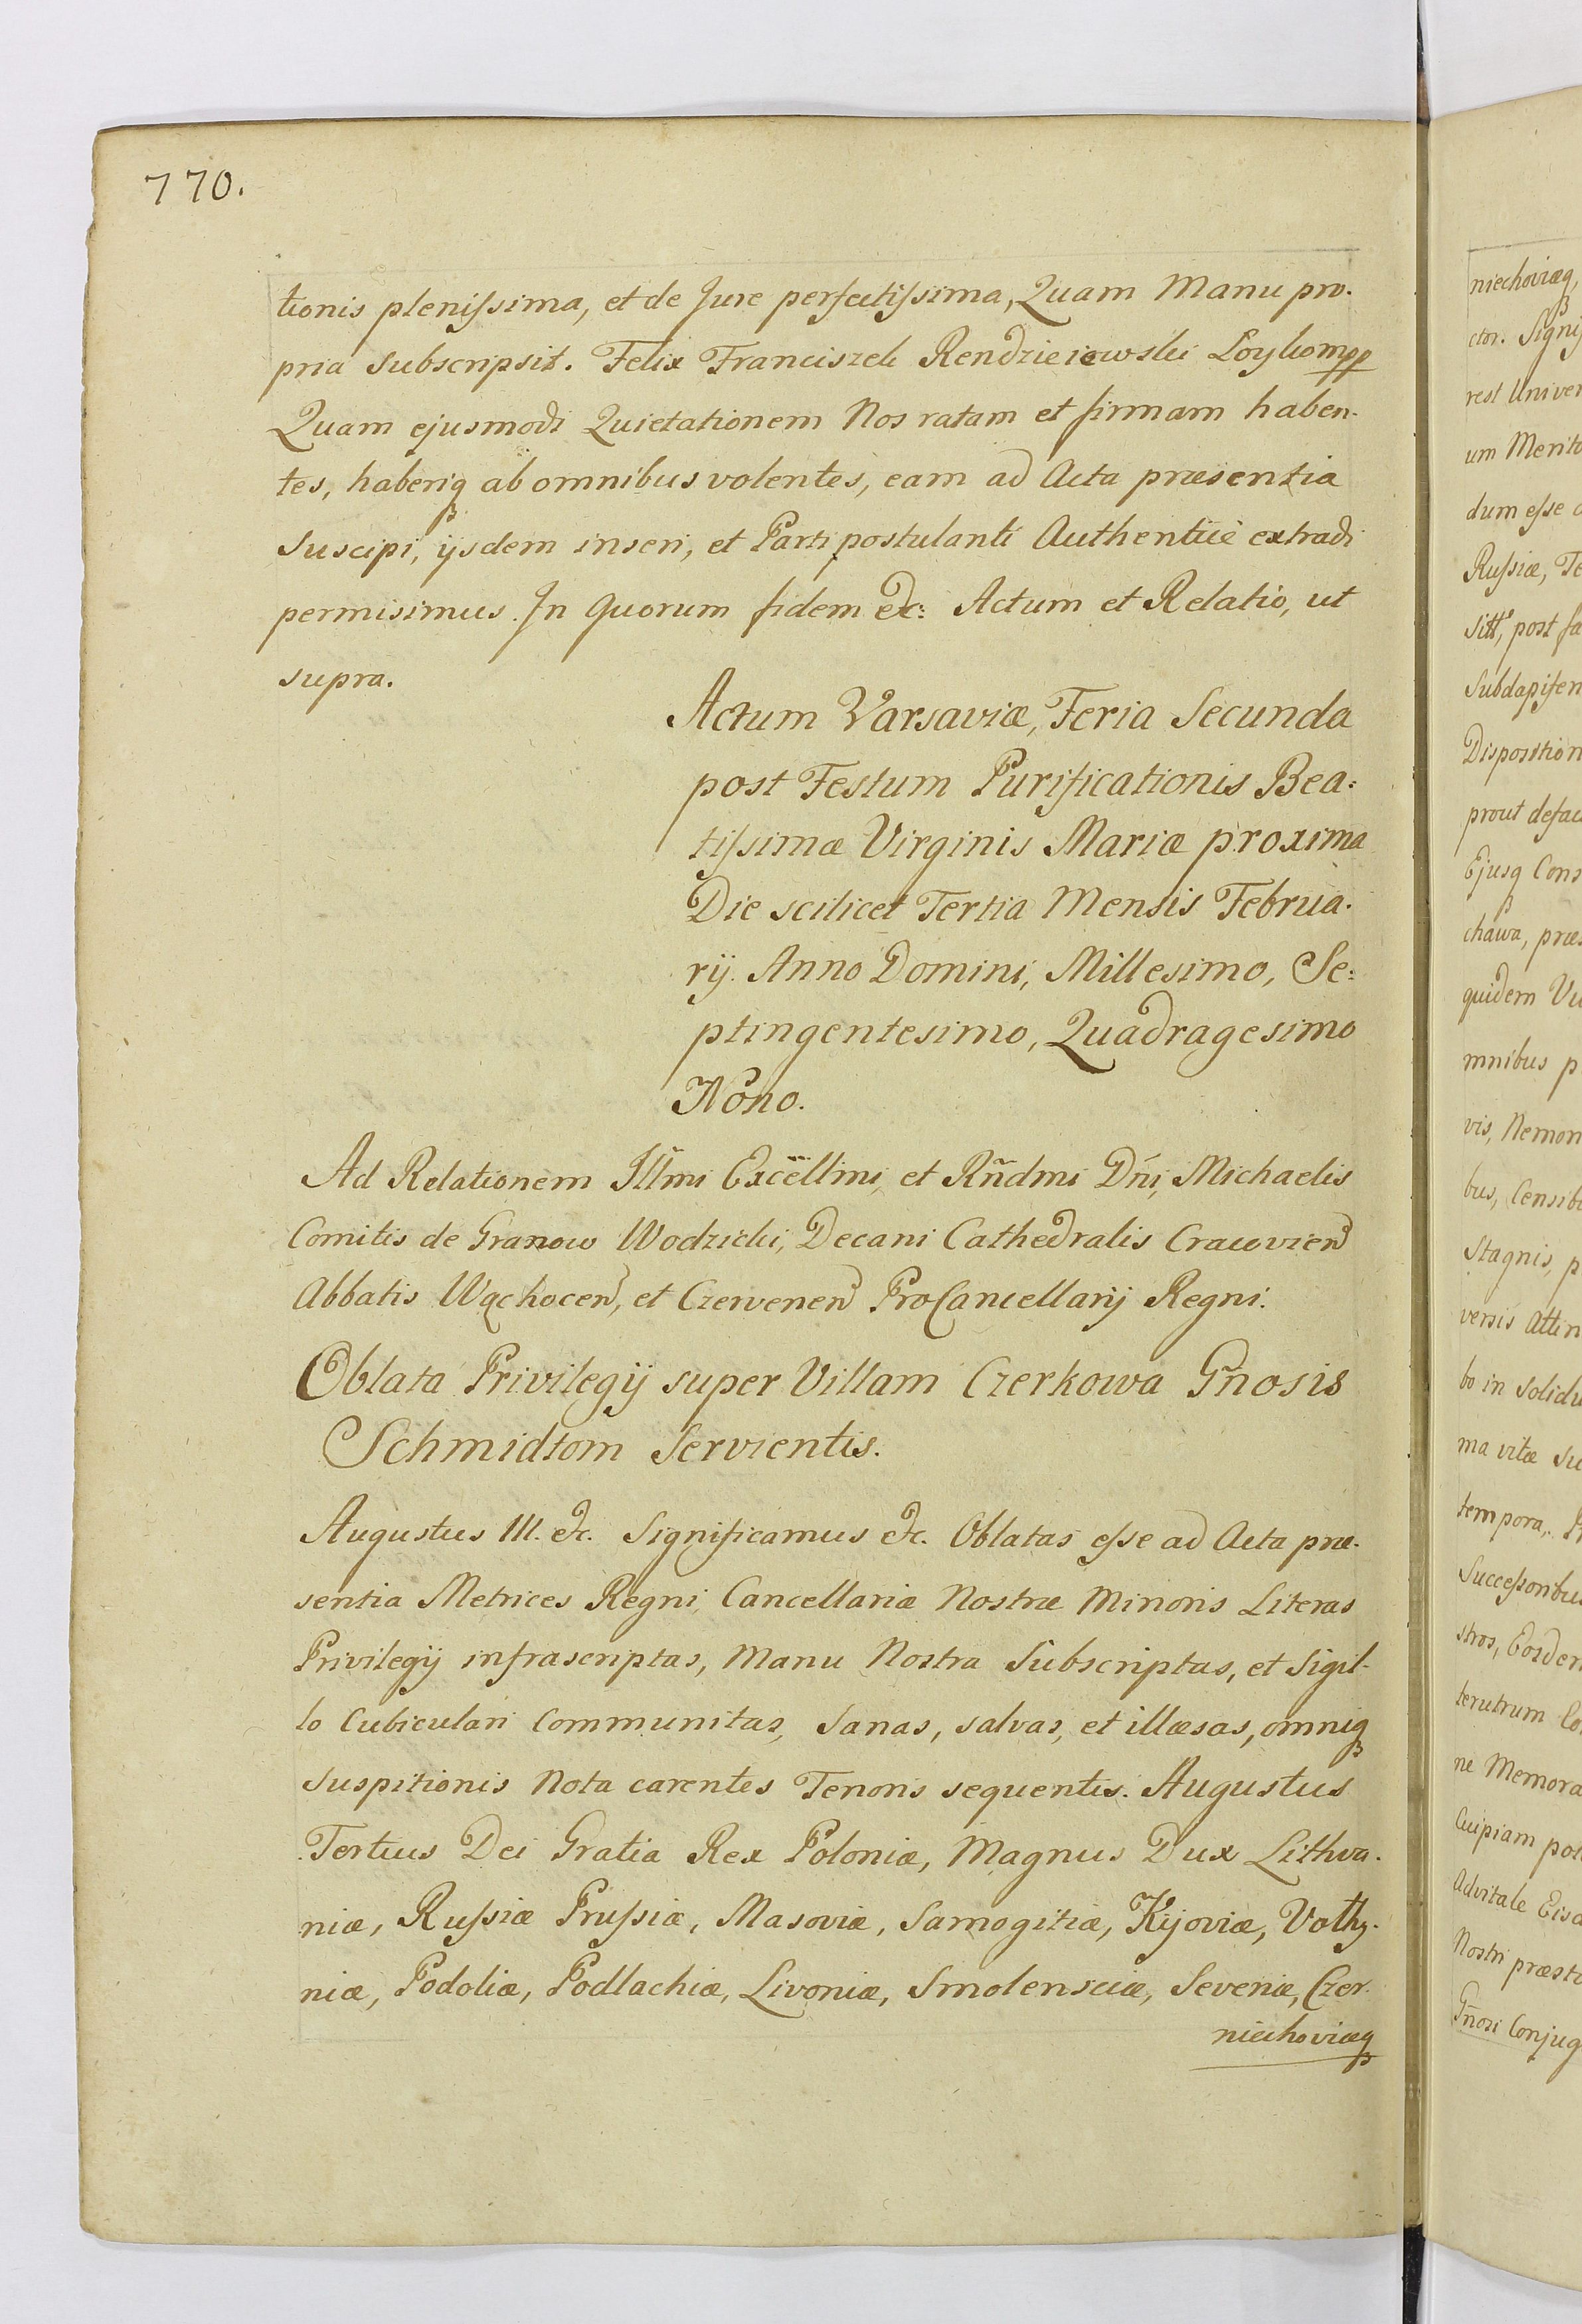 770.
tionis plenissima, et de Jure perfectissima, Quam Manu pro-
pria Subscripsit. Felix Franciszek Rendzieiowski Łoyko mpp
Quam ejusmodi Quietationem Nos ratam et firmam haben-
tes, haberiq ab omnibus volentes, eam ad Acta præsentia
Suscipi, ijsdem inseri, et Parti postulanti Authenticè extradi
permisimus. In quorum fidem etc: Actum et Relatio, ut
supra.
Actum Varsaviæ, Feria Secunda
post Festum Purificationis Bea:
tissimæ Virginis Mariæ proxima
Die scilicet Tertia Mensis Februa-
rij. Anno Domini, Millesimo, Se:
ptingentesimo, Quadragesimo
Nono.
Ad Relationem Illmi Excellmi, et Rñdmi Dñi, Michaelis
Comitis de Granow Wodzicki, Decani Cathedralis Cracovien
Abbatis Wąchocen, et Czerwenen ProCancellarij Regni.
Oblata Privilegij super Villam Czerkowa Gñosis
Schmidtom Servientis.
Augustus III. etc. Significamus etc. Oblatas esse ad Acta præ-
sentia Metrices Regni, Cancellariæ Nostræ Minoris Literas
Privilegij infrascriptas, Manu Nostra Subscriptas, et Sigil-
lo Cubiculari Communitas, Sanas, salvas, et illæsas, omniq
Suspitionis Nota carentes Tenoris sequentis. Augustus
Tertius Dei Gratia Rex Poloniæ, Magnus Dux Lithva-
niæ, Russiæ Prussiæ, Masoviæ, Samogitiæ, Kijoviæ, Volhy-
niæ, Podoliæ, Podlachiæ, Livoniæ, Smolensciæ, Severiæ, Czer-
niechoviæq
niechoviæq,
ctor. Signi
rest Univer
um Merito
dum esse
Russiæ, Te
post fa
Subdapifen
Disposition
prout defac
Ejusq Cons
chawa, præ
quidem Vi
mnibus p
vis, Nemon
bus, Censib
Stagnis, p
versis Attin
bo in Solidu
ma vitæ su
tempora,
Successoribu
stros, Eosdem
terutrum Co
ne Memora
Cuipiam pot
Advitale Eisd
Nostri præsta
Gñosi Conjug